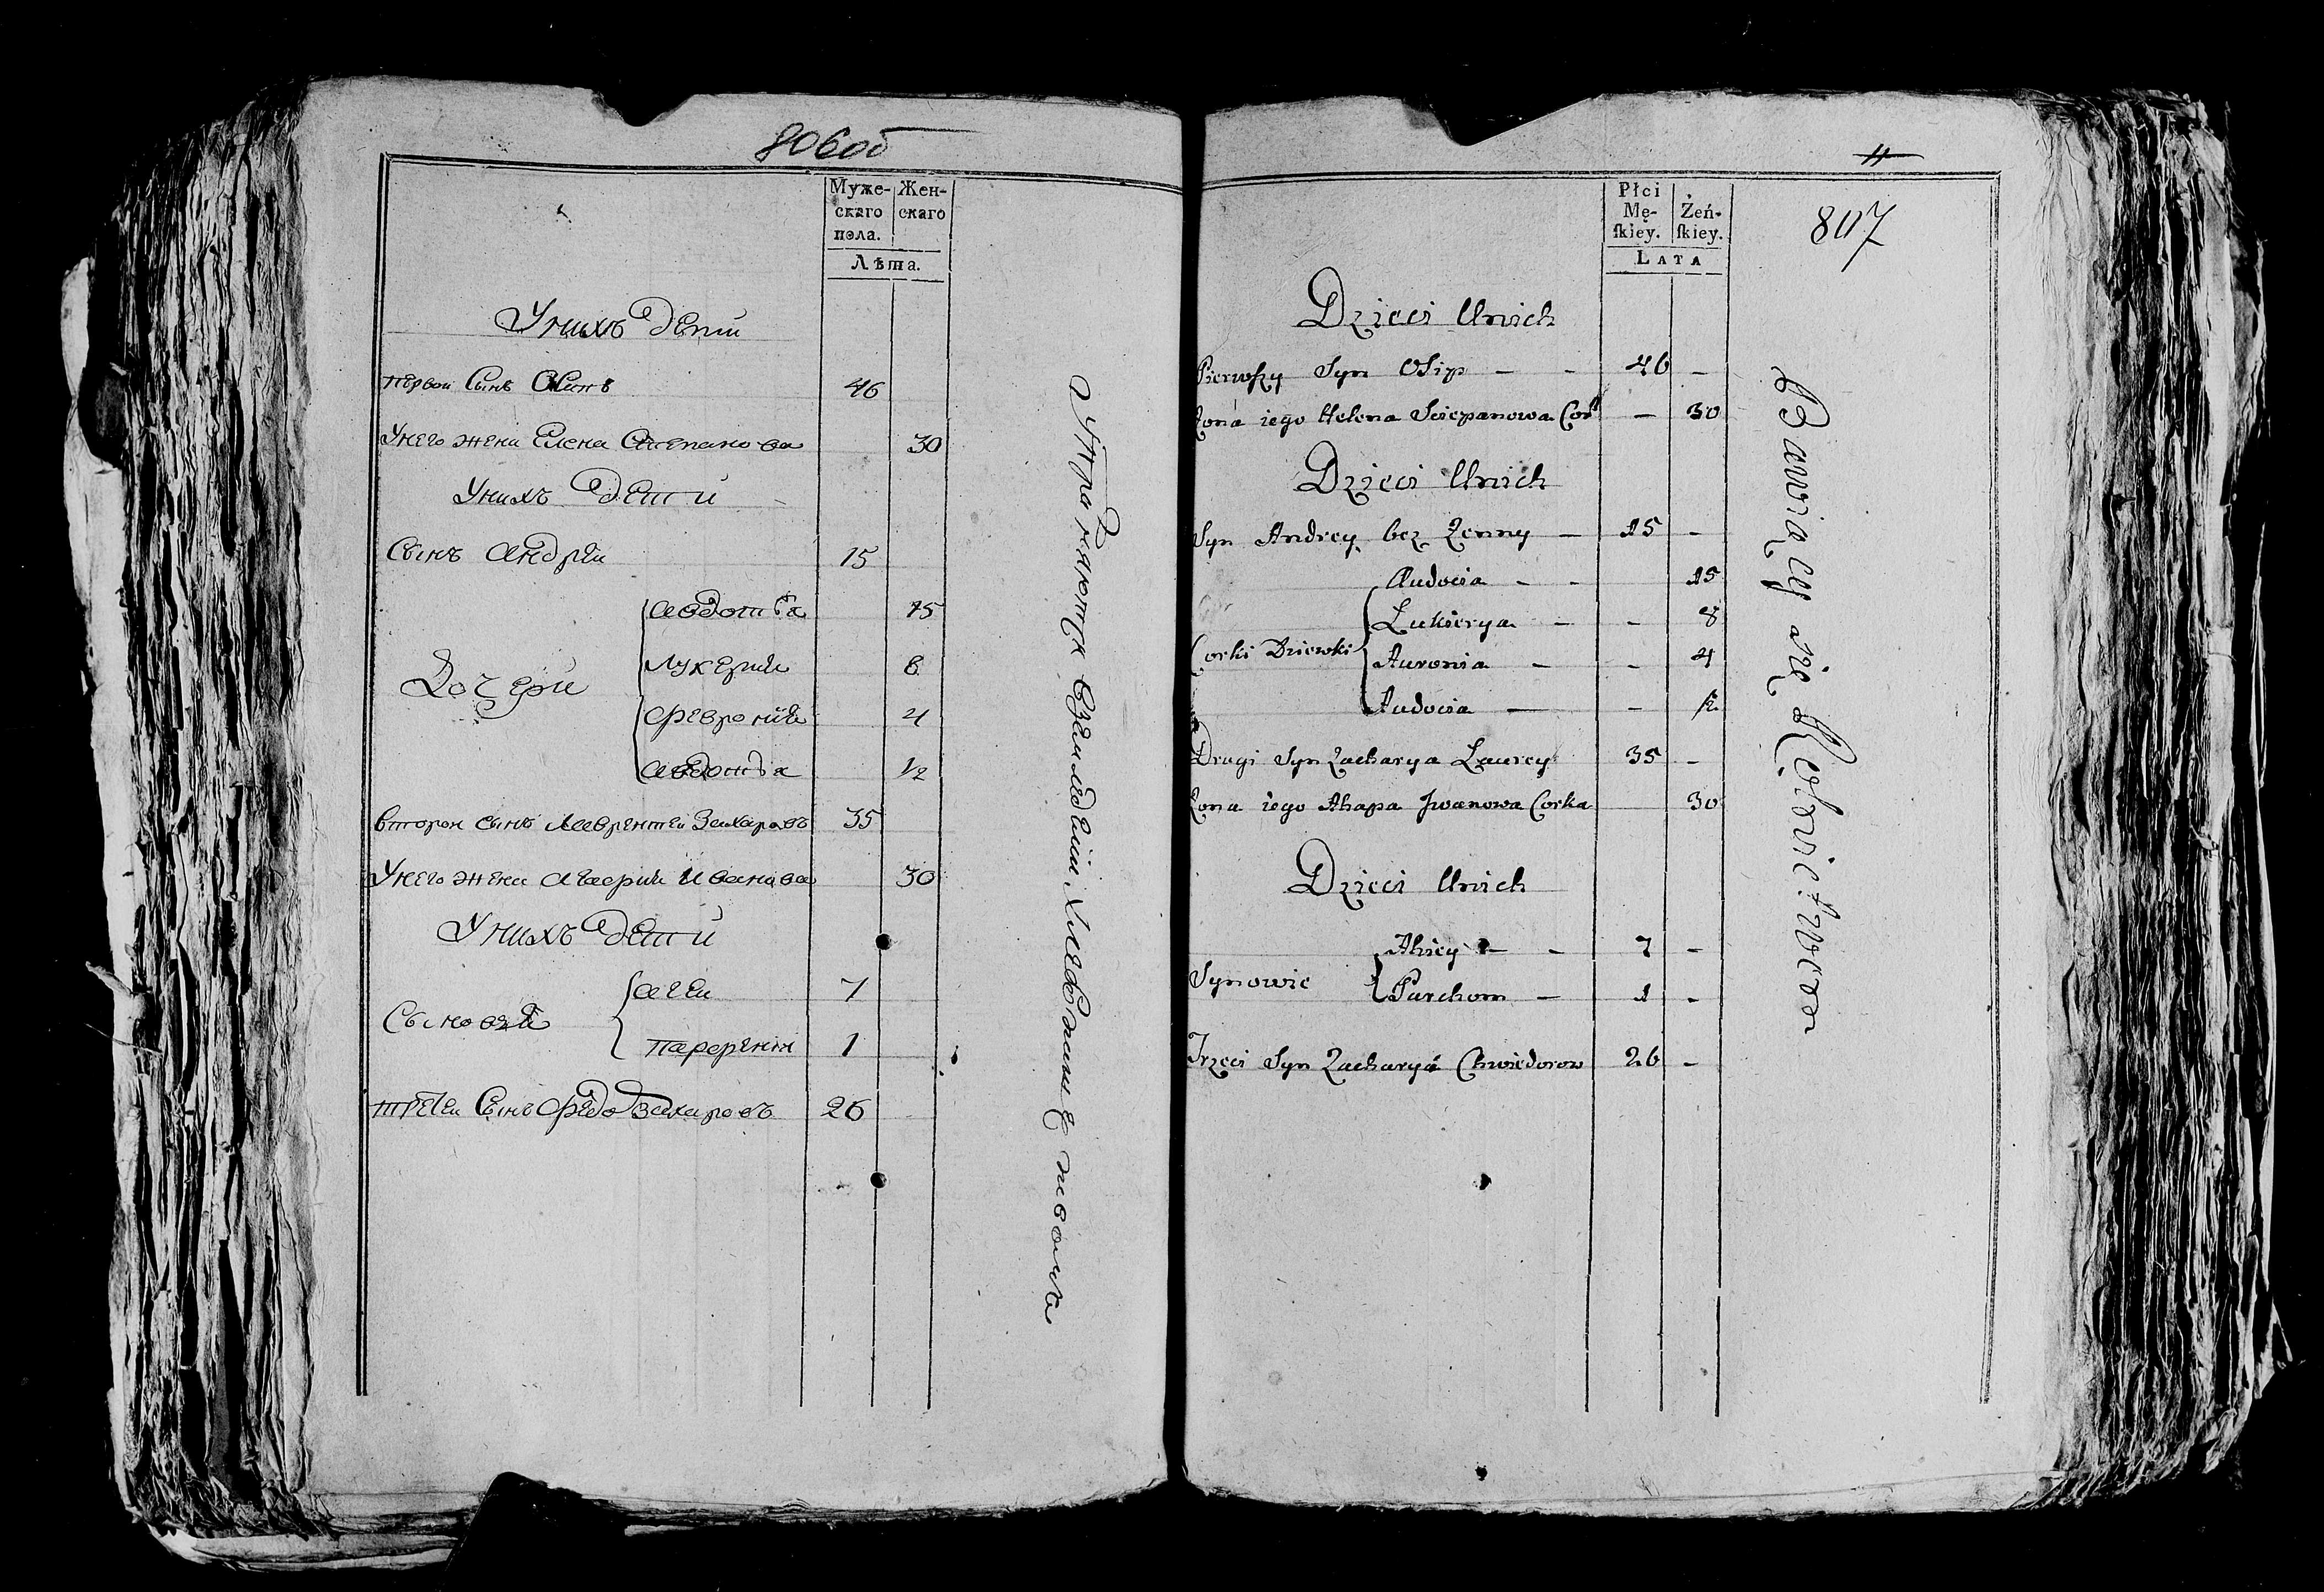 806об
Муже-
скаго
пола.
Жен-
скаго
Лѣта.
У нихъ дети
первой Сынъ Осипъ 46
У него жена Елена Степанова 30
У нихъ дети
Сынъ Андрей 15
Дочери
Авдотья 15
Лукерия 8
Феврония 4
Авдотья 1/2
второй сынъ Лаврентей Захаровъ 35
У него жена Агафия Иванова 30
У нихъ дети
Сыновья
Агей 7
Парфенти 1
третей Сынъ Федо Захаровъ 26
Упражняются Взамледелии Хлебопашествомъ
11
807
Płci
Mę-
ſkiey.
Żeń-
ſkiey.
LATA
Dzieci Unich
Pierwszy Syn Osip – – 46 –
Zona iego Helena Sciepanowa Cor – 30
Dzieci Unich
Syn Andrey bez Zenny – 15 –
Corki Dziewki
Audocia – – 15
Lukierya – – 8
Auronia – – 4
Audocia – – 1/2
Drugi Syn Zacharya Laurey 35 –
Zona iego Ahapa Jwanowa Corka 30
Dzieci Unich
Synowie
Ahiey – – 7 –
Parchom – 1 –
Trzeci Syn Zacharya Chwiedorow 26 –
Bawiący się Rolnictwem